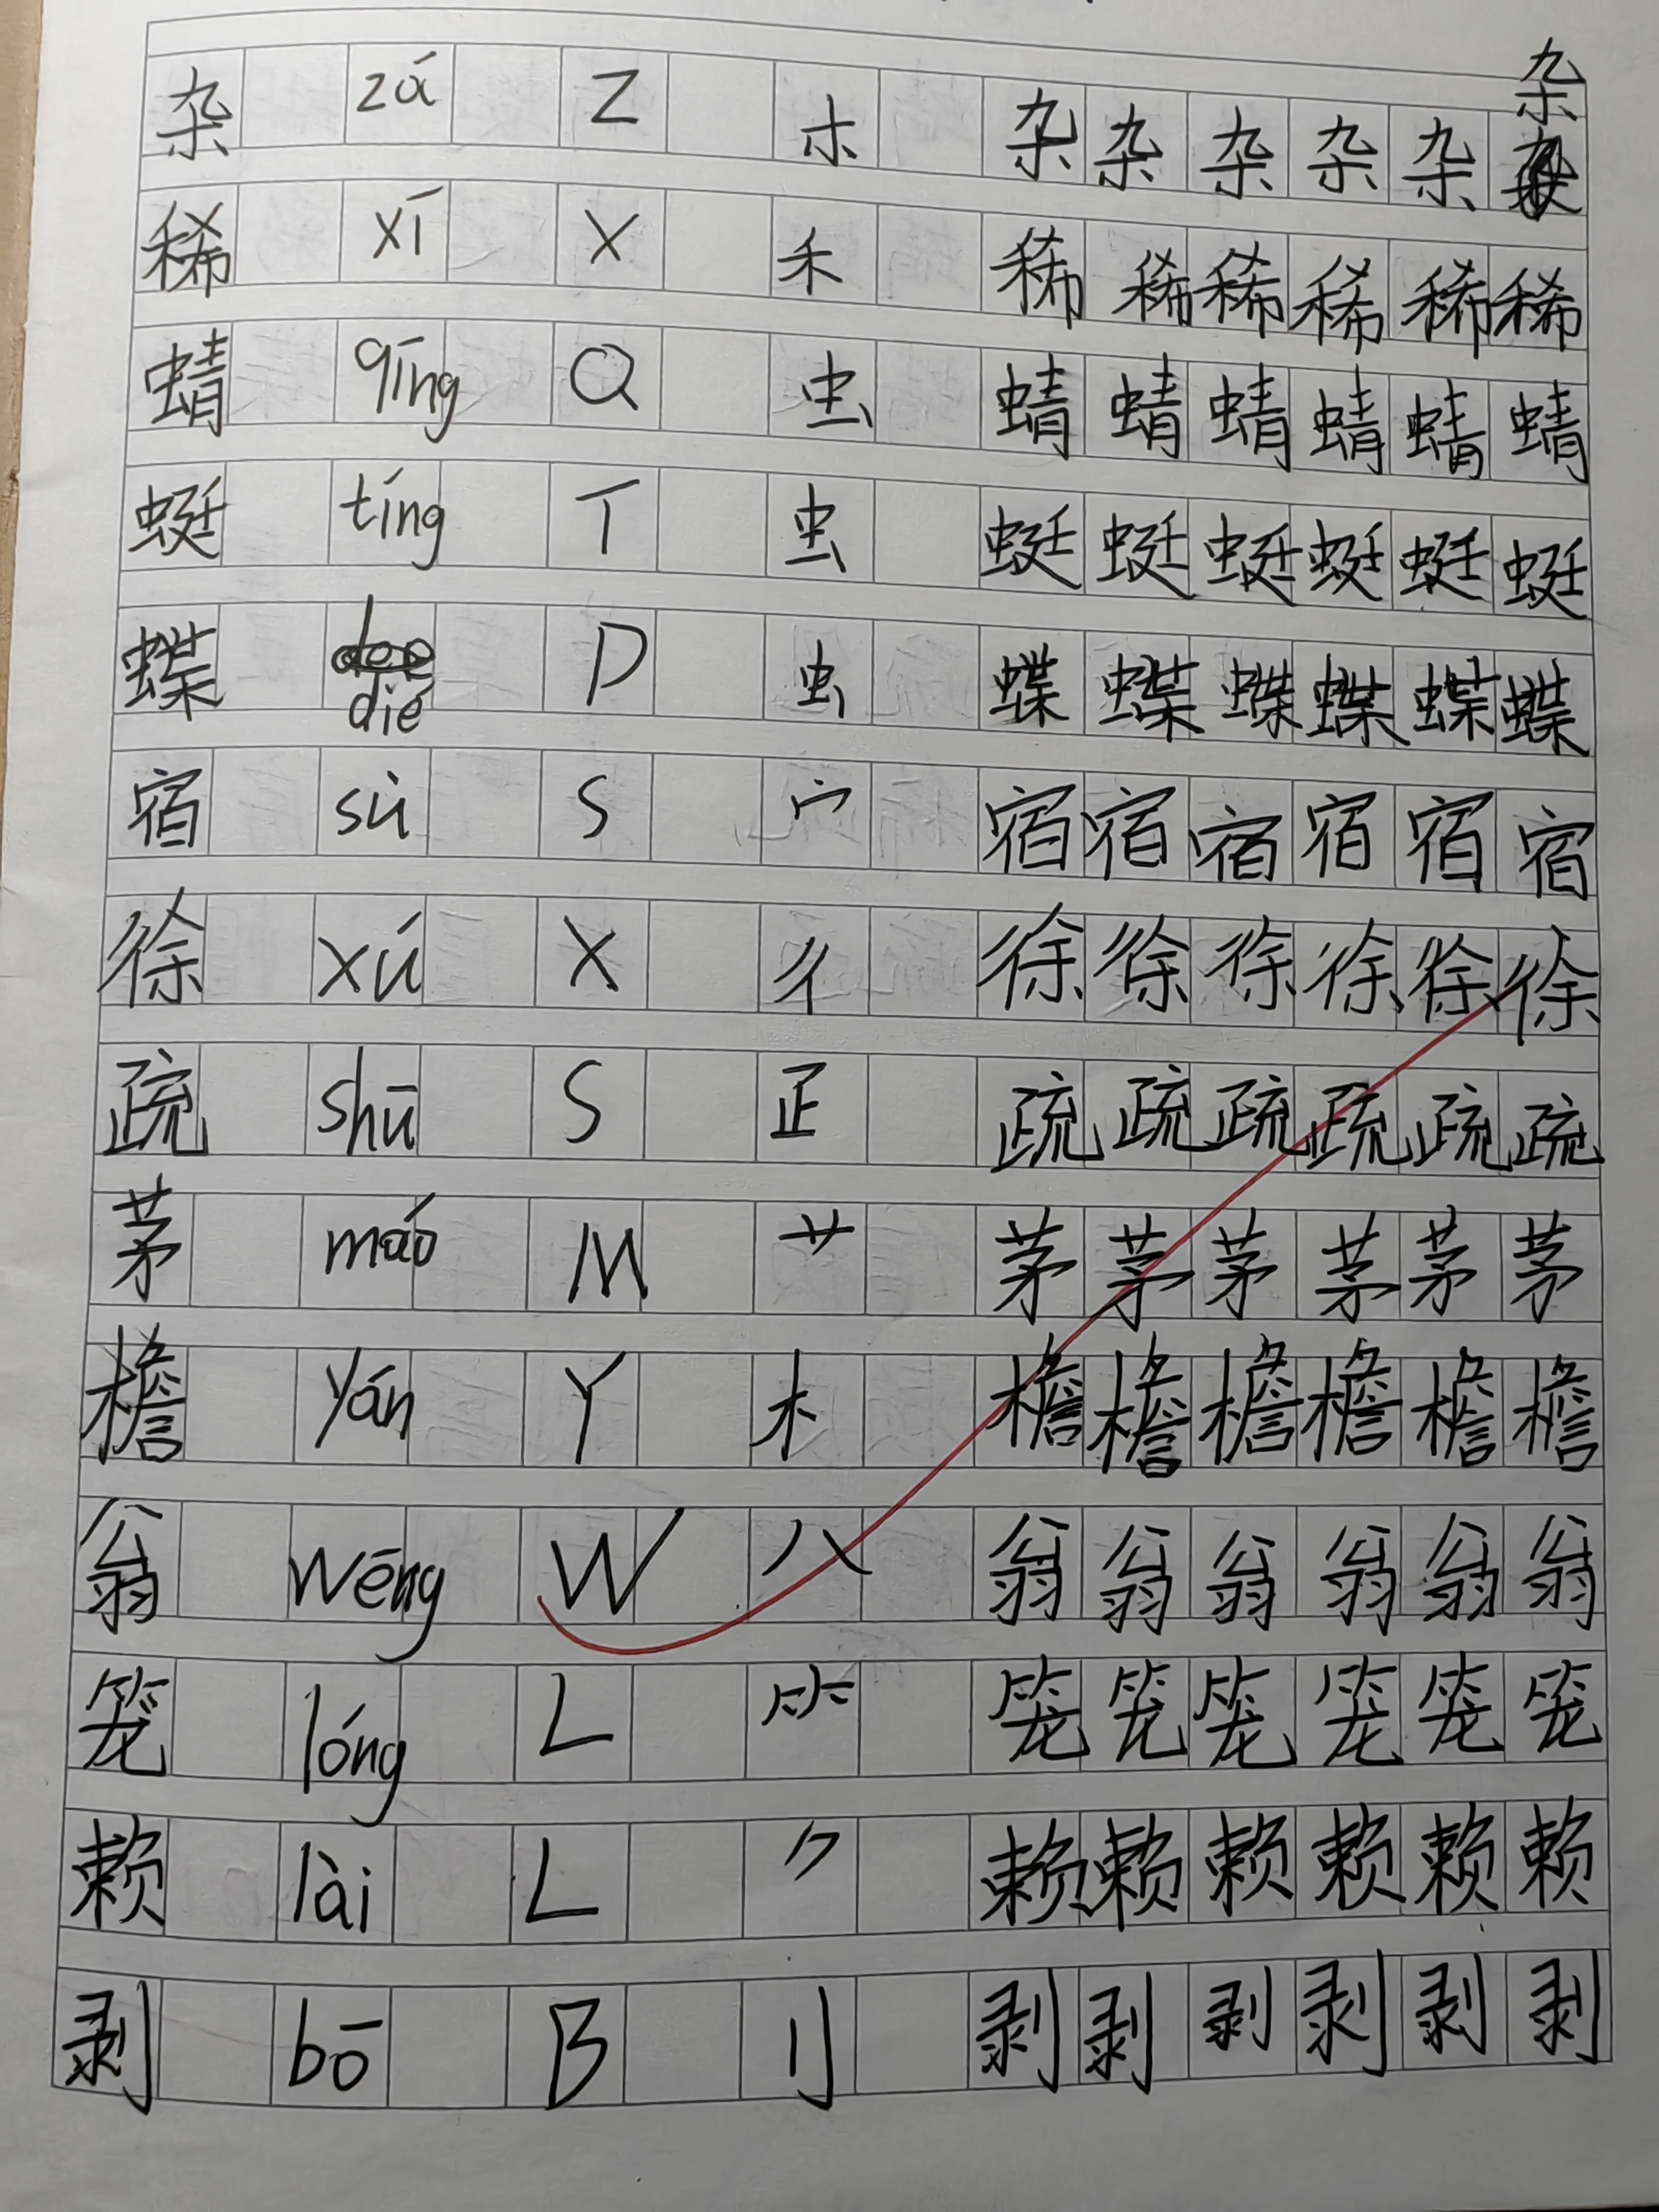 杂 zá Z 朩 杂 杂 杂 杂 杂 杂
稀 xī X 禾 稀 稀 稀 稀 稀 稀
蜻 qīng Q 虫 蜻 蜻 蜻 蜻 蜻 蜻
蜓 tíng T 虫 蜓 蜓 蜓 蜓 蜓 蜓
蝶 dié D 虫 蝶 蝶 蝶 蝶 蝶 蝶
宿 sù S 宀 宿 宿 宿 宿 宿 宿
徐 xú X 彳 徐 徐 徐 徐 徐 徐
疏 shū S 正 疏 疏 疏 疏 疏 疏
茅 máo M 艹 茅 茅 茅 茅 茅 茅
檐 yán Y 木 檐 檐 檐 檐 檐 檐
翁 wēng W 八 翁 翁 翁 翁 翁 翁
笼 lóng L ⺮ 笼 笼 笼 笼 笼 笼
赖 lài L ⺈ 赖 赖 赖 赖 赖 赖
剥 bō B 刂 剥 剥 剥 剥 剥 剥